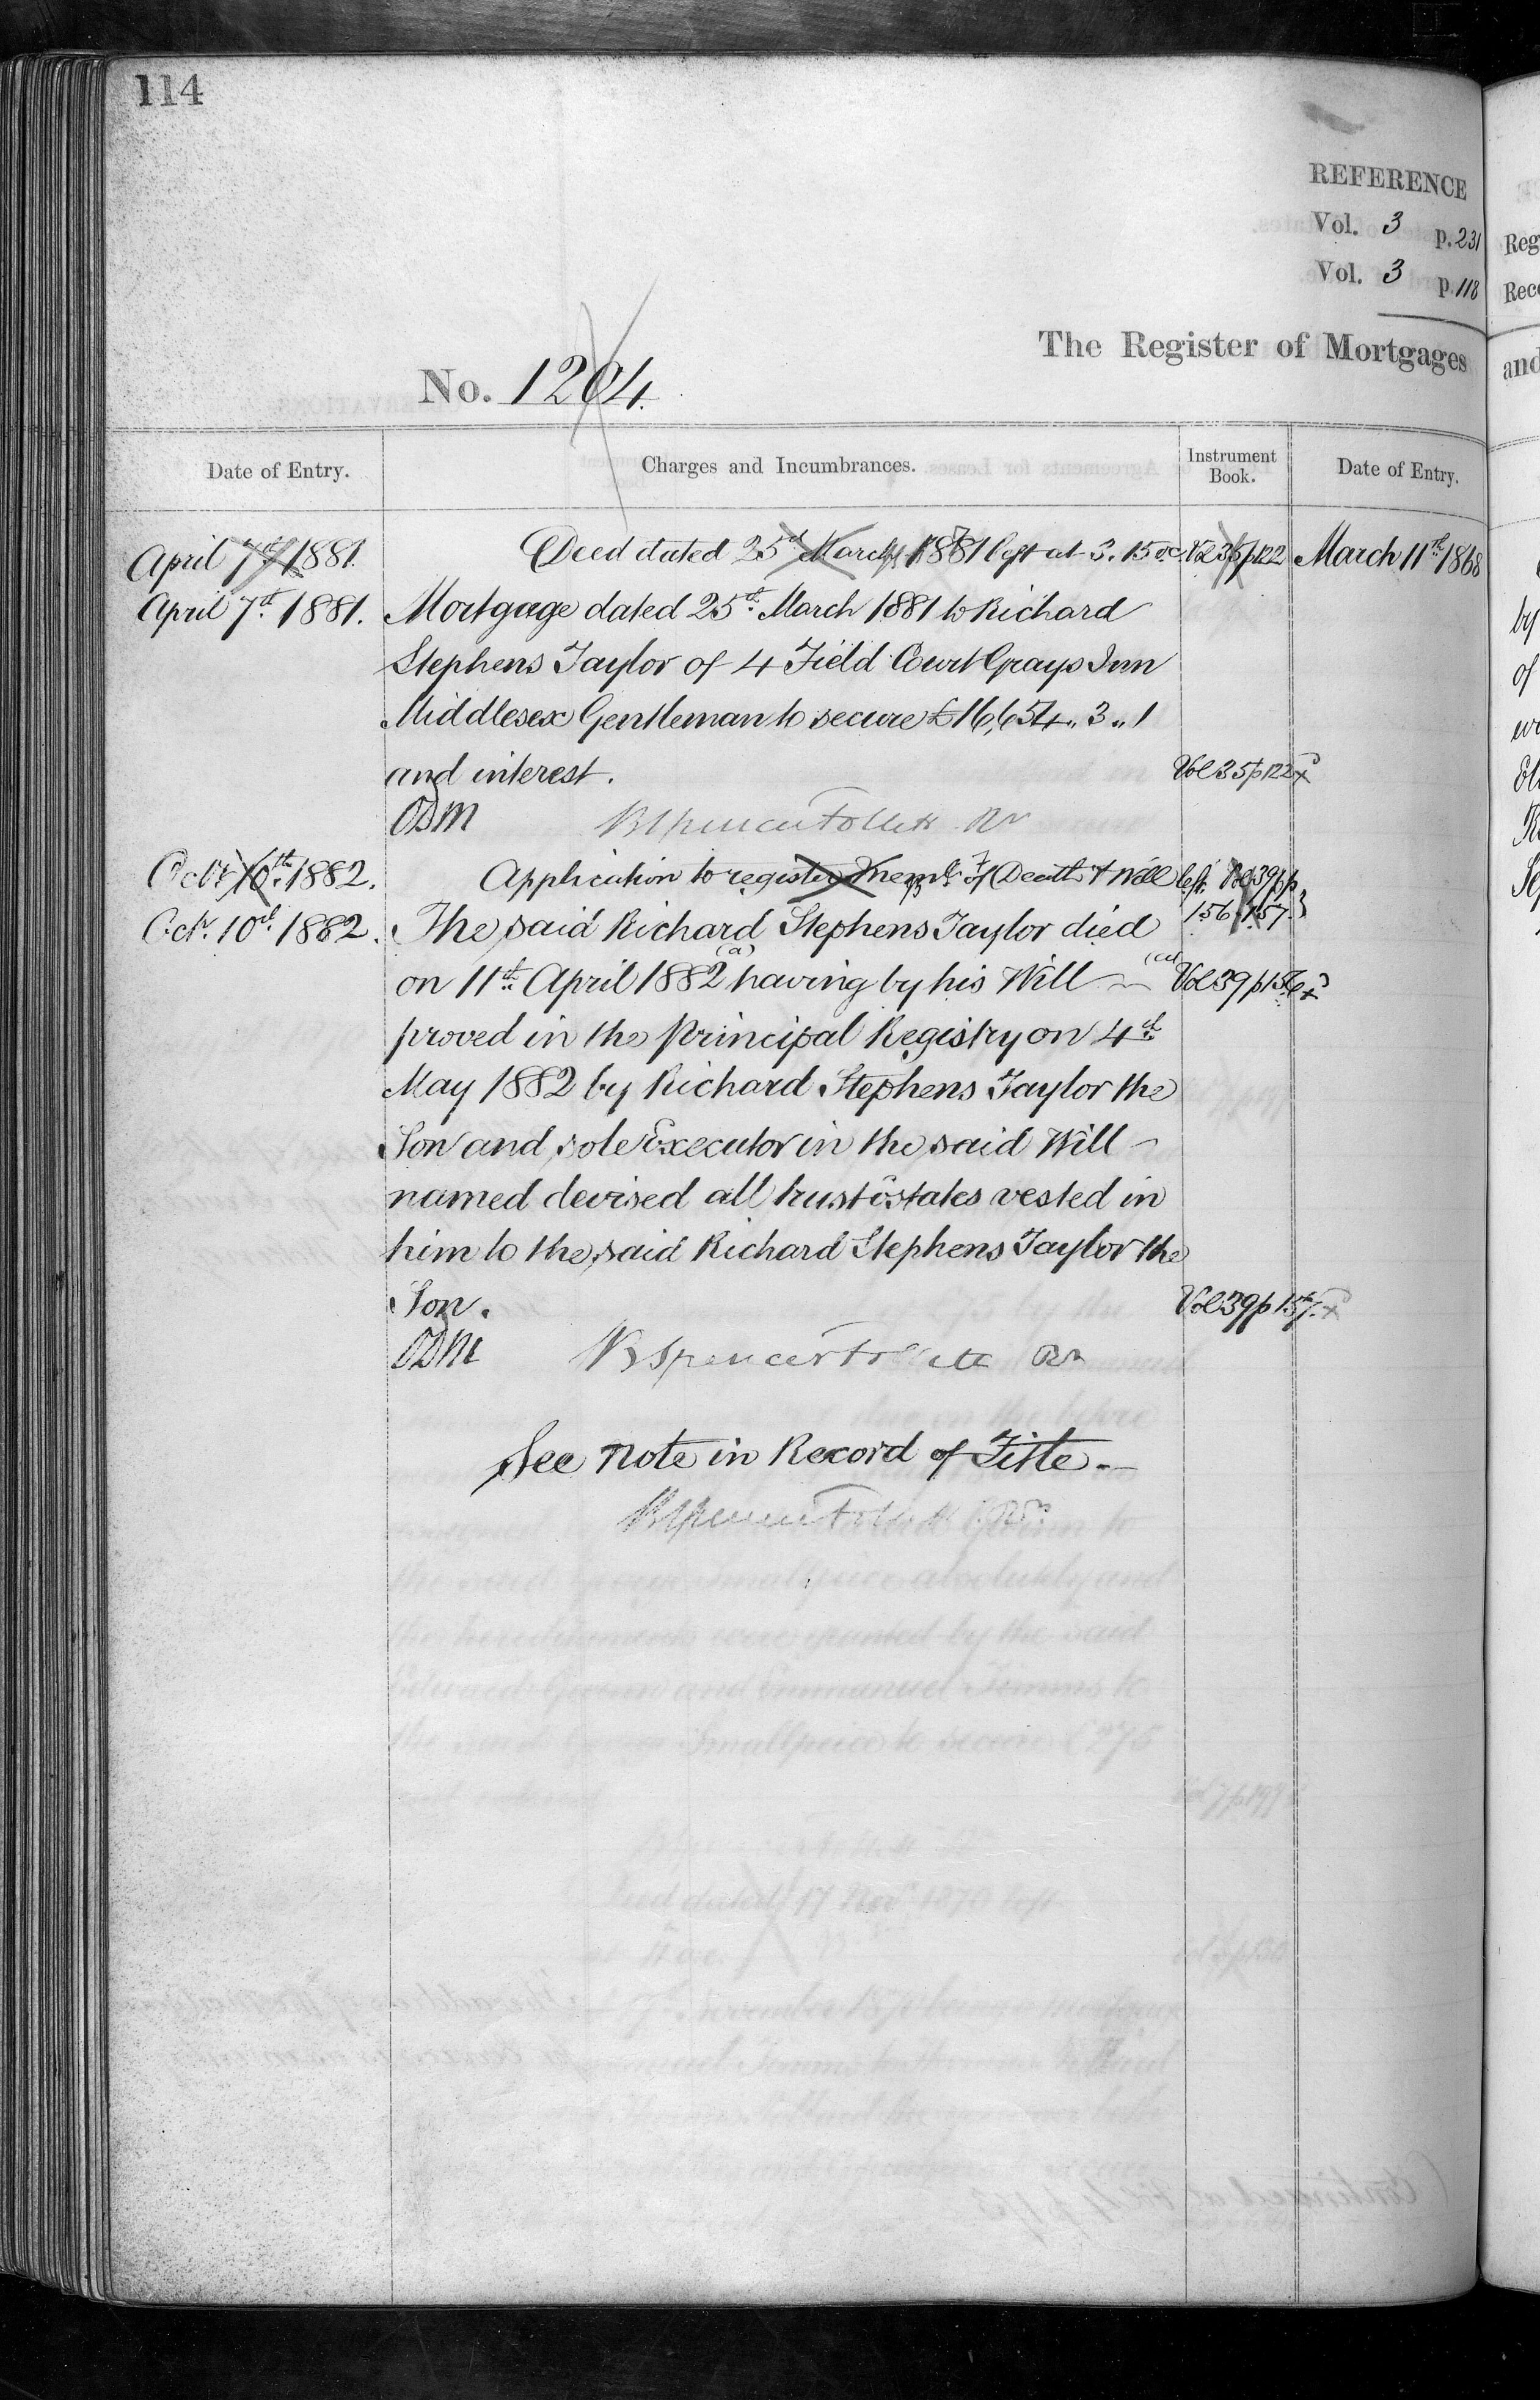 114
REFERENCE
Vol. 3 p. 231
Vol. 3 p. 118
The Register of Mortgages
No. 1204.
Date of Entry.
Charges and Incumbrances.
Instrument Book.
Date of Entry.
April 7th 1881. Deed dated 25th March 1881 left at 3.15 oc. Vol 35 p 122 March 11th 1868
April 7th 1881. Mortgage dated 25th March 1881 to Richard
Stephens Taylor of 4 Field Court Grays Inn
Middlesex Gentleman to secure £16,654 " 3 " 1
and interest. Vol 35 p 122
ODM BSpencer Follett Rr
Octr 10th 1882. Application to register Meml. of Death & Will left. Vol 39 pp
156. 157.
Octr. 10th 1882. The said Richard Stephens Taylor died
on 11th April 1882 (a) having by his Will (a) Vol 39 p 156
proved in the Principal Registry on 4th
May 1882 by Richard Stephens Taylor the
Son and sole Executor in the said Will
named devised all trust estates vested in
him to the said Richard Stephens Taylor the
Son. Vol 39 p 157.
ODM BSpencer Follett Rr
See note in Record of Title.
BSpencer Follett Rr
Reg
Rec
and
by
of